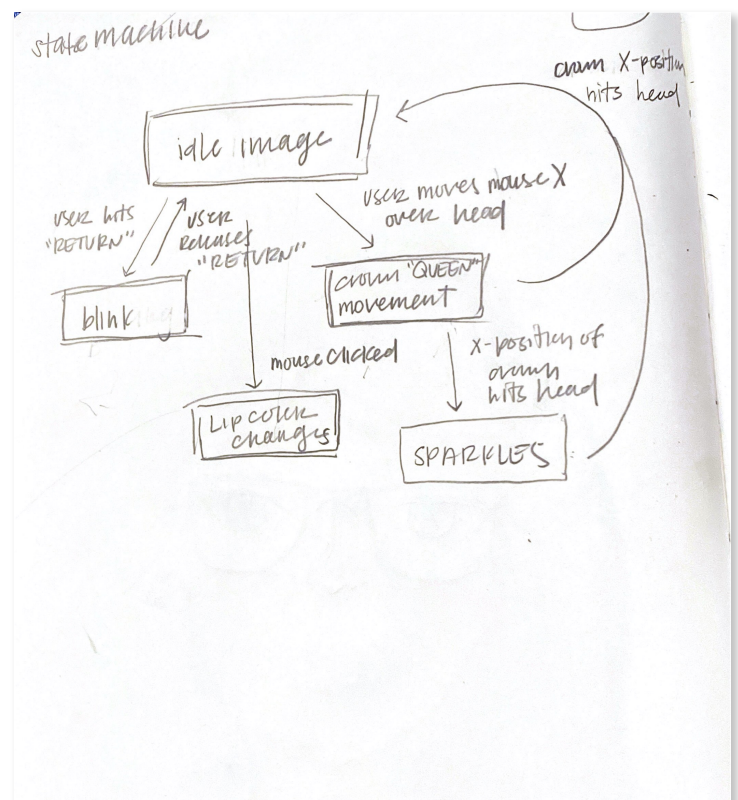 state machine
crown X-position
hits head
idle image
user hits
"RETURN"
user
releases
"RETURN"
user moves mouse X
over head
blink
crown "QUEEN"
movement
mouse clicked
X-position of
crown
hits head
Lip color
changes
SPARKLES